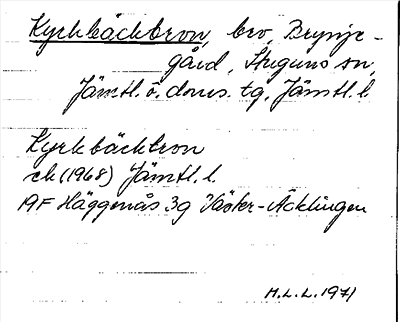 Kyrkbäcksbron, bro, Brynje-
gård, Stuguns sn,
Jämtl. ö. doms. tg, Jämtl. l.
Kyrkbäcksbron
ek (1968) Jämtl. l.
19F Häggenås 3g Väster-Acklingen
M.L.L. 1971